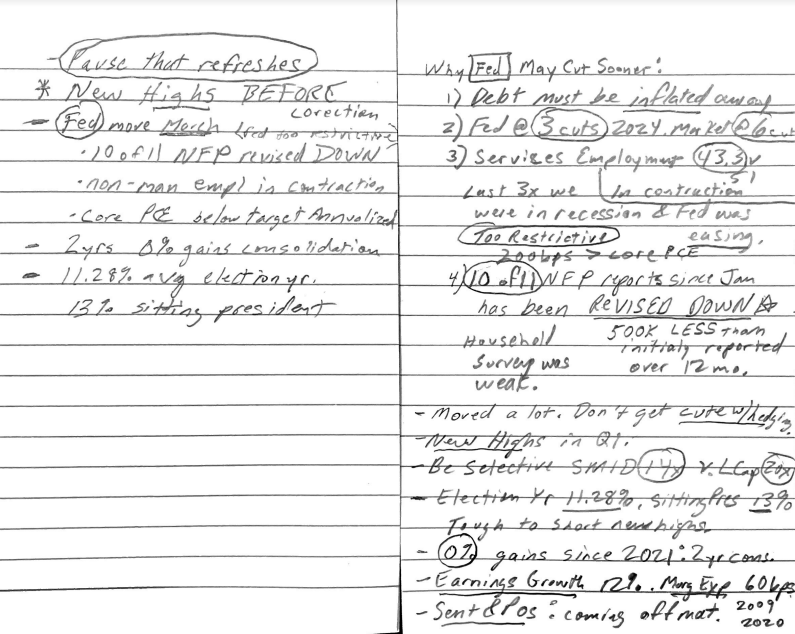 - Pause that refreshes
* New Highs BEFORE
corection
- Fed move March (Fed too restrictive
· 10 of 11 NFP revised DOWN
· non-man empl in contraction
· Core PCE below target Annualized
- 2yrs 0% gains consolidation
- 11.28% avg election yr.
13% sitting president
Why Fed May Cut Sooner:
1) Debt must be inflated away
2) Fed @ 3 cuts 2024. Market @ 6 cuts
3) Services Employment 43.3 v
Last 3x we In contraction
were in recession & Fed was
Too Restrictive easing.
200bps > core PCE
4) 10 of 11 NFP reports since Jan
has been REVISED DOWN
Household 500K LESS than
Survey was initialy reported
weak. over 12 mo.
- Moved a lot. Don't get cute w/hedging.
- New Highs in Q1.
- Be Selective SMID 14x v. LCap 20x
- Election Yr 11.28%, sitting Pres 13%
Tough to short new highs.
- 0% gains since 2021: 2yr cons.
- Earnings Growth 12%. Marg Exp 60bps
- Sent & Pos: coming off mat. 2009
2020